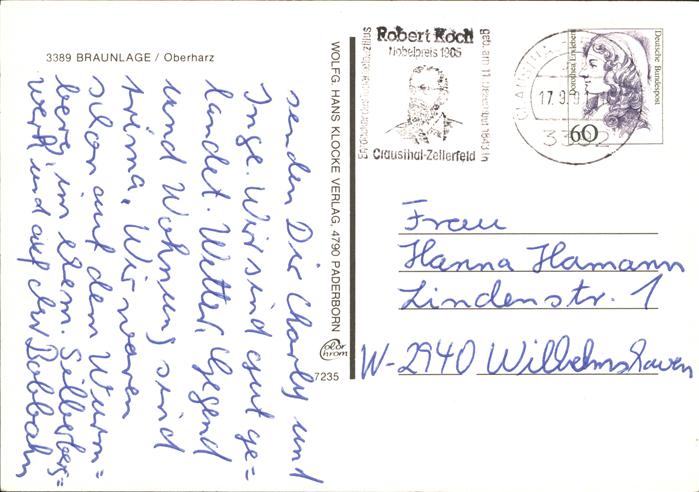 3389 BRAUNLAGE / Oberharz
senden Dir Charly und
Inge. Wir sind gut ge=
landet. Wetter, Gegend
und Wohnung sind
prima. Wir waren
schon auf dem Wurm=
berg, im ehem. Silberberg=
werk und auf der Bobbahn
WOLFG. HANS KLOCKE VERLAG, 4790 PADERBORN
Color
chrom
7235
Robert Koch
Nobelpreis 1905
geb. am 11. Dezember 1843 in
Clausthal-Zellerfeld
CLAUSTHAL
17.9.91
3392
60
Dorothea Erxleben
Deutsche Bundespost
Frau
Hanna Hamann
Lindenstr. 1
W-2940 Wilhelmshaven